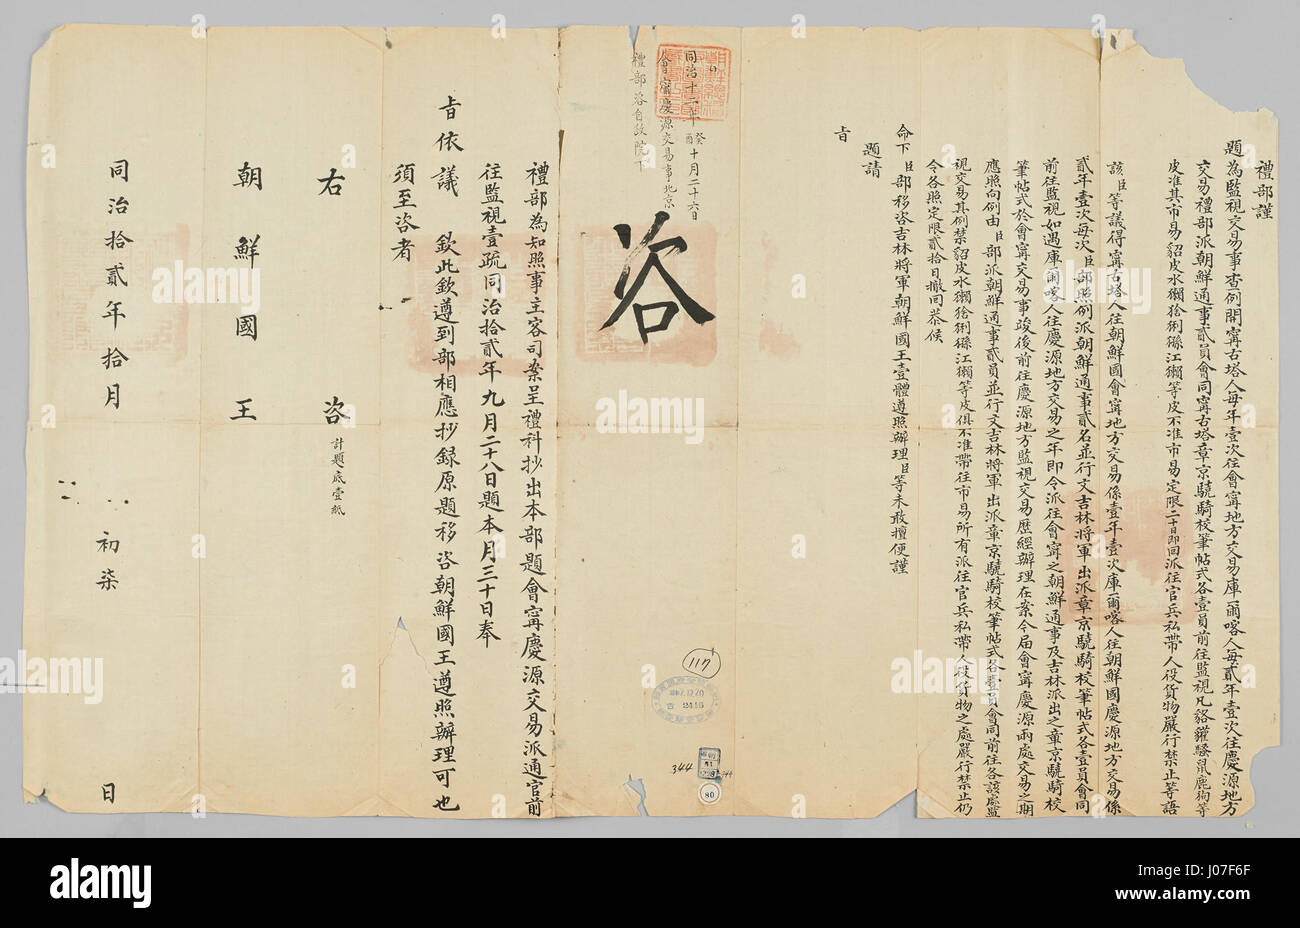 禮部謹
題為監視交易事查例開寧古塔人每年壹次往會寧地方交易庫爾喀人每貳年壹次往慶源地方
交易禮部派朝鮮通事貳員會同寧古塔章京驍騎校筆帖式各壹員前往監視凡貉獾騷鼠鹿狗等
皮准其市易貂皮水獺猞猁猻江獺等皮不准市易定限二十日即回派往官兵私帶人役貨物嚴行禁止等語
該臣等議得寧古塔人往朝鮮國會寧地方交易係壹年壹次庫爾喀人往朝鮮國慶源地方交易係
貳年壹次每次臣部照例派朝鮮通事貳名並行文吉林將軍出派章京驍騎校筆帖式各壹員會同
前往監視如遇庫爾喀人往慶源地方交易之年即令派往會寧之朝鮮通事及吉林派出之章京驍騎校
筆帖式於會寧交易事竣後前往慶源地方監視交易歷經辦理在案今届會寧慶源兩處交易之期
應照向例由臣部派朝鮮通事貳員並行文吉林將軍出派章京驍騎校筆帖式各壹員會同前往各該處監
視交易其例禁貂皮水獺猞猁猻江獺等皮俱不准帶往市易所有派往官兵私帶人役貨物之處嚴行禁止仍
令各照定限貳拾日撤回恭候
命下臣部移咨吉林將軍朝鮮國王壹體遵照辦理臣等未敢擅便謹
題請
旨
同治十二年癸酉十月二十六日
會寧慶源交易事北京
禮部咨自政院下
咨
禮部為知照事主客司案呈禮科抄出本部題會寧慶源交易派通官前
往監視壹疏同治拾貳年九月二十八日題本月三十日奉
旨依議 欽此欽遵到部相應抄錄原題移咨朝鮮國王遵照辦理可也
須至咨者
右 咨
計題底壹紙
朝鮮國王
同治拾貳年拾月 初柒 日
117
2416
344
80
alamy
alamy stock photo
J07F6F
www.alamy.com